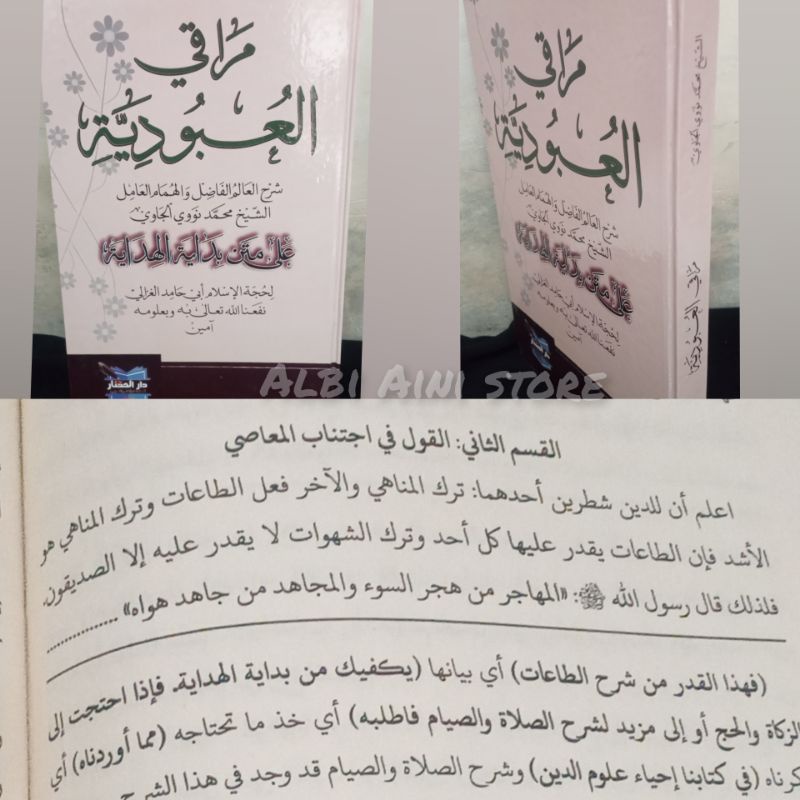 مَرَاقي
العُبُودِيَّةِ
شرح العالم الفاضل والهمام العامل
الشيخ محمد نووي الجاوي
على متن بداية الهداية
لحجة الإسلام أبي حامد الغزالي
نفعنا الله تعالى به وبعلومه
آمين
دار المختار
مَرَاقي
العُبُودِيَّةِ
شرح العالم الفاضل والهمام العامل
الشيخ محمد نووي الجاوي
على متن بداية الهداية
لحجة الإسلام أبي حامد الغزالي
نفعنا الله تعالى به وبعلومه
آمين
الشيخ محمد نووي الجاوي
مراقي العبودية
ALBI AINI STORE
القسم الثاني: القول في اجتناب المعاصي
اعلم أن للدين شطرين أحدهما: ترك المناهي والآخر فعل الطاعات وترك المناهي هو
الأشد فإن الطاعات يقدر عليها كل أحد وترك الشهوات لا يقدر عليه إلا الصديقون.
فلذلك قال رسول الله ﷺ: «المهاجر من هجر السوء والمجاهد من جاهد هواه» ................
(فهذا القدر من شرح الطاعات) أي بيانها (يكفيك من بداية الهداية. فإذا احتجت إلى
الزكاة والحج أو إلى مزيد لشرح الصلاة والصيام فاطلبه) أي خذ ما تحتاجه (مما أوردناه) أي
كرناه (في كتابنا إحياء علوم الدين) وشرح الصلاة والصيام قد وجد في هذا الشرح